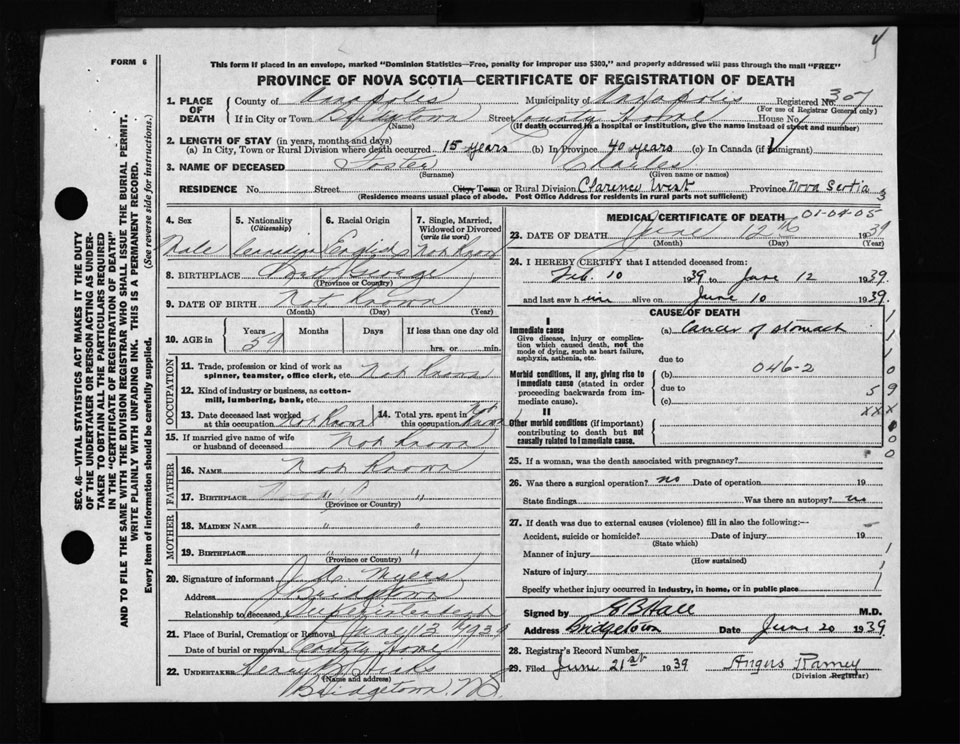 FORM 6
This form if placed in an envelope, marked "Dominion Statistics—Free, penalty for improper use $300," and properly addressed will pass through the mail "FREE"
PROVINCE OF NOVA SCOTIA—CERTIFICATE OF REGISTRATION OF DEATH
SEC. 46—VITAL STATISTICS ACT MAKES IT THE DUTY
OF THE UNDERTAKER OR PERSON ACTING AS UNDER-
TAKER TO OBTAIN ALL THE PARTICULARS REQUIRED
IN THE "CERTIFICATE OF REGISTRATION OF DEATH"
AND TO FILE THE SAME WITH THE DIVISION REGISTRAR WHO SHALL ISSUE THE BURIAL PERMIT.
WRITE PLAINLY WITH UNFADING INK. THIS IS A PERMANENT RECORD.
Every item of information should be carefully supplied. (See reverse side for instructions.)
1. PLACE OF DEATH County of Annapolis Municipality of Annapolis Registered No. 307
(For use of Registrar General only)
If in City or Town Bridgetown Street County Home House No.
(Name) (If death occurred in a hospital or institution, give the name instead of street and number)
2. LENGTH OF STAY (in years, months and days)
(a) In City, Town or Rural Division where death occurred 15 years (b) In Province 40 years (c) In Canada (if immigrant)
3. NAME OF DECEASED Foster Charles
(Surname) (Given name or names)
RESIDENCE No. Street City Town or Rural Division Clarence West Province Nova Scotia 3
(Residence means usual place of abode. Post Office Address for residents in rural parts not sufficient)
4. Sex 5. Nationality (Citizenship) 6. Racial Origin 7. Single, Married, Widowed or Divorced (write the word)
Male Canadian English Not Known
8. BIRTHPLACE
(Province or Country)
9. DATE OF BIRTH Not Known
(Month) (Day) (Year)
10. AGE in Years Months Days If less than one day old
59 hrs. or min.
OCCUPATION
11. Trade, profession or kind of work as spinner, teamster, office clerk, etc. Not Known
12. Kind of industry or business, as cotton-mill, lumbering, bank, etc.
13. Date deceased last worked at this occupation Not Known 14. Total yrs. spent in this occupation Not Known
15. If married give name of wife or husband of deceased Not Known
FATHER
16. NAME Not Known
17. BIRTHPLACE "
(Province or Country)
MOTHER
18. MAIDEN NAME " "
19. BIRTHPLACE " "
(Province or Country)
20. Signature of informant Myers
Address Bridgetown
Relationship to deceased Superintendent
21. Place of Burial, Cremation or Removal June 13th 1939
Date of burial or removal County Home
22. UNDERTAKER Hicks
(Name and address)
Bridgetown, N.S.
MEDICAL CERTIFICATE OF DEATH 01-04-05
23. DATE OF DEATH June 12th 1939
(Month) (Day) (Year)
24. I HEREBY CERTIFY that I attended deceased from:
Feb. 10 1939 to June 12 1939
and last saw him alive on June 10 1939.
CAUSE OF DEATH
I
Immediate cause (a) Cancer of stomach
Give disease, injury or complication which caused death, not the mode of dying, such as heart failure, asphyxia, asthenia, etc.
due to
Morbid conditions, if any, giving rise to immediate cause (stated in order proceeding backwards from immediate cause). (b) 046-2
due to
(c)
II
Other morbid conditions (if important) contributing to death but not causally related to immediate cause.
59
xxx
25. If a woman, was the death associated with pregnancy?
26. Was there a surgical operation? no Date of operation 19
State findings Was there an autopsy? no
27. If death was due to external causes (violence) fill in also the following:—
Accident, suicide or homicide? Date of injury 19
(State which)
Manner of injury
(How sustained)
Nature of injury
Specify whether injury occurred in industry, in home, or in public place
Signed by E B Hall M.D.
Address Bridgetown Date June 20 1939
28. Registrar's Record Number
29. Filed June 21st 1939 Angus Ramey
(Division Registrar)